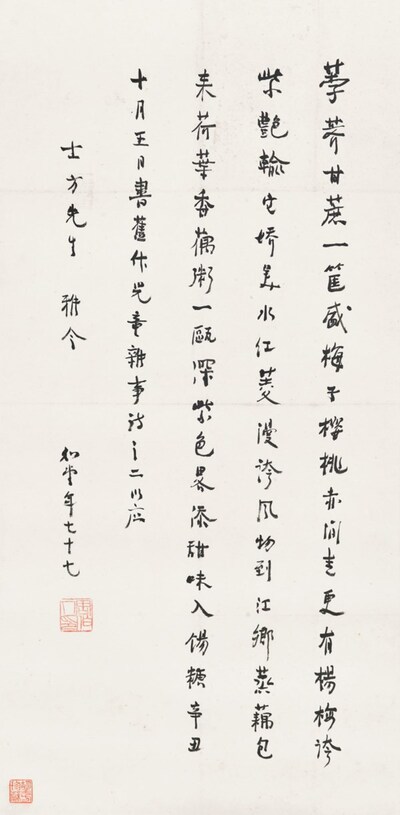 荸荠甘蔗一筐盛梅子櫻桃赤间青更有楊梅誇
紫艷輸它嬌美水红菱漫誇風物到江鄉蒸藕包
来荷葉香藕粥一甌深紫色畧添甜味入餳糖辛丑
十月五日書舊作兒童雜事詩之二以应
士方先生 雅令
知堂年七十七